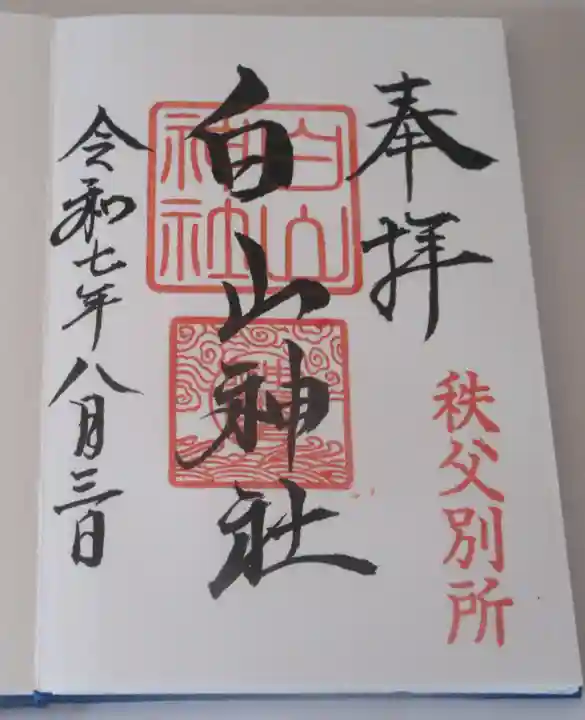 奉拝
秩父別所
白山神社
白山神社
令和七年八月三日